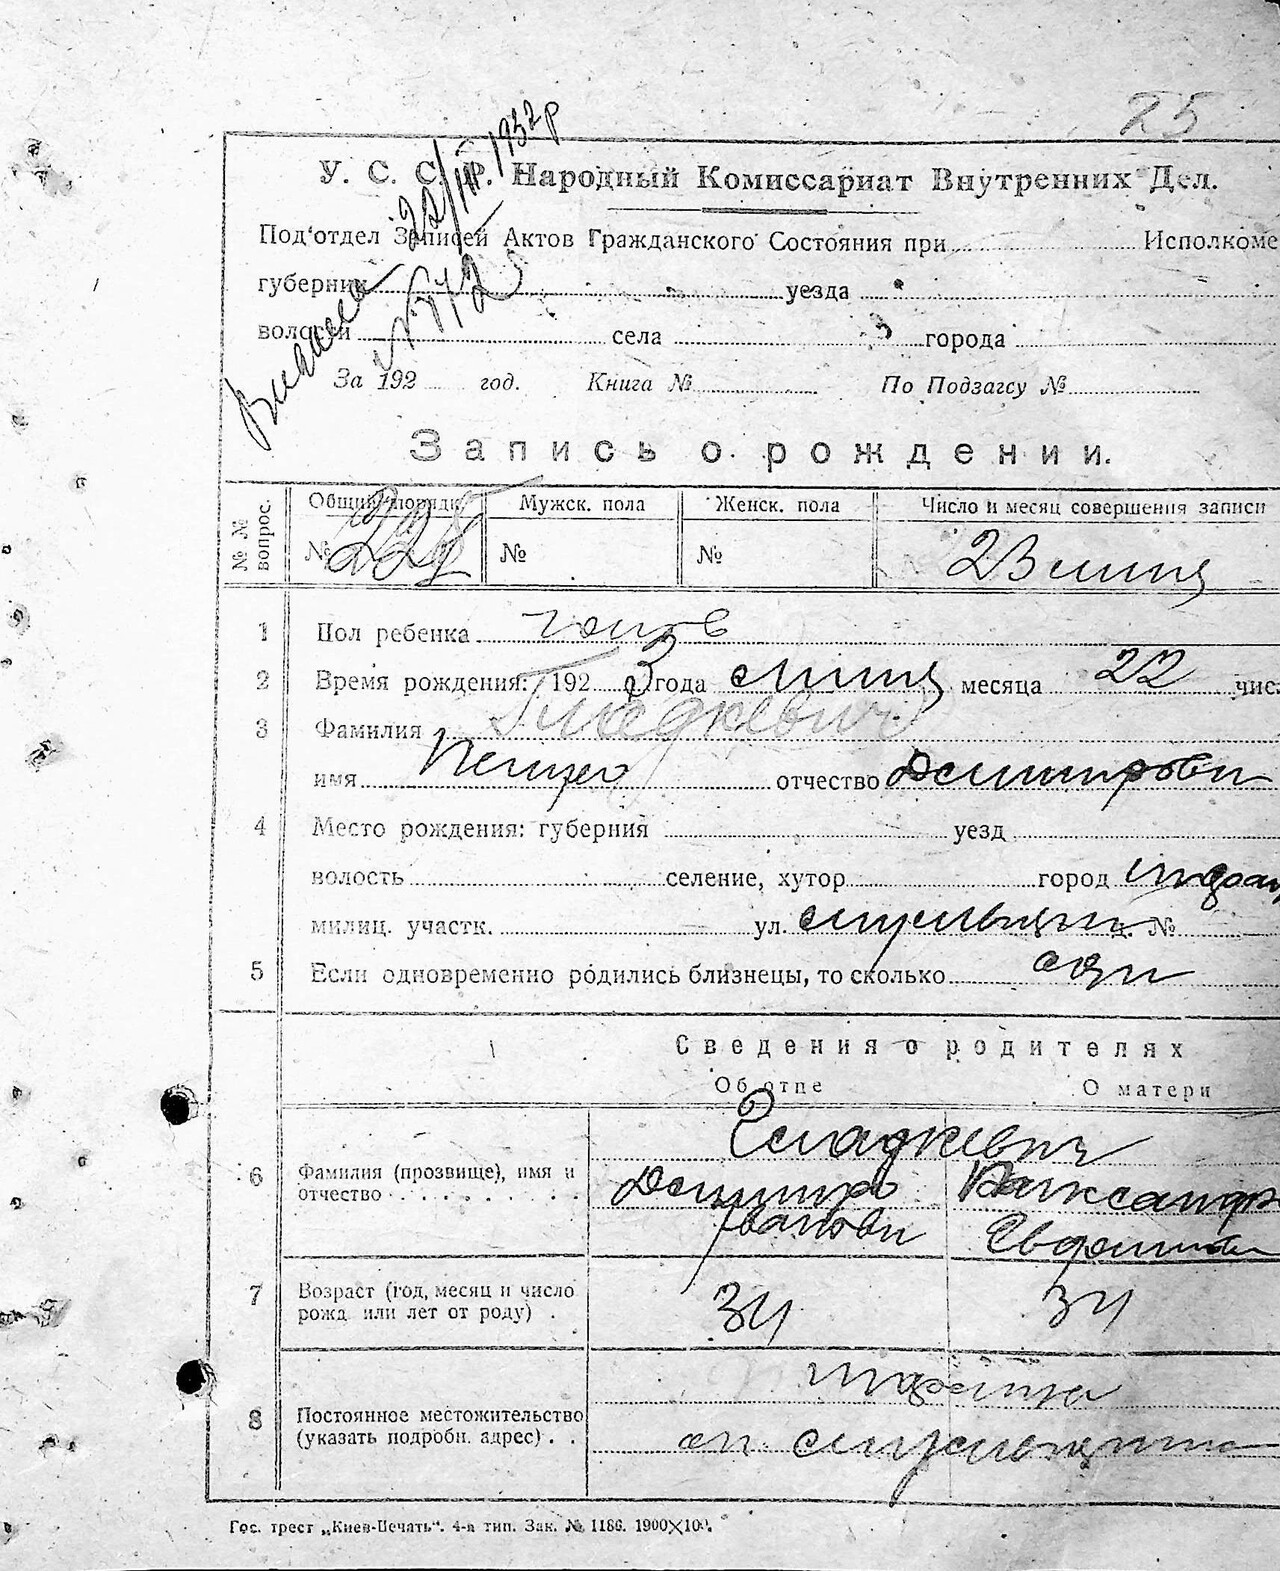 25
22/III 1932 р
№ 472
У. С. С. Р. Народный Комиссариат Внутренних Дел.
Под'отдел Записей Актов Гражданского Состояния при Исполкоме
губернии уезда
волости села города
За 192 год. Книга № По Подзагсу №
Запись о рождении.
№ № вопрос.
Общий порядк. Мужск. пола Женск. пола Число и месяц совершения записи
№ № № 23
1 Пол ребенка
2 Время рождения: 192 3 года месяца 22 чис
3 Фамилия Гладкевич
имя Петро отчество Демитрови
4 Место рождения: губерния уезд
волость селение, хутор город
милиц. участк. ул. д. №
5 Если одновременно родились близнецы, то сколько один
Сведения о родителях
Об отце О матери
Гладкевич
6 Фамилия (прозвище), имя и отчество Демитро Александр
Іванови
7 Возраст (год, месяц и число рожд или лет от роду) 34 34
8 Постоянное местожительство (указать подробн. адрес)
Гос. трест „Киев-Печать". 4-я тип. Зак. № 1186. 1900×100.